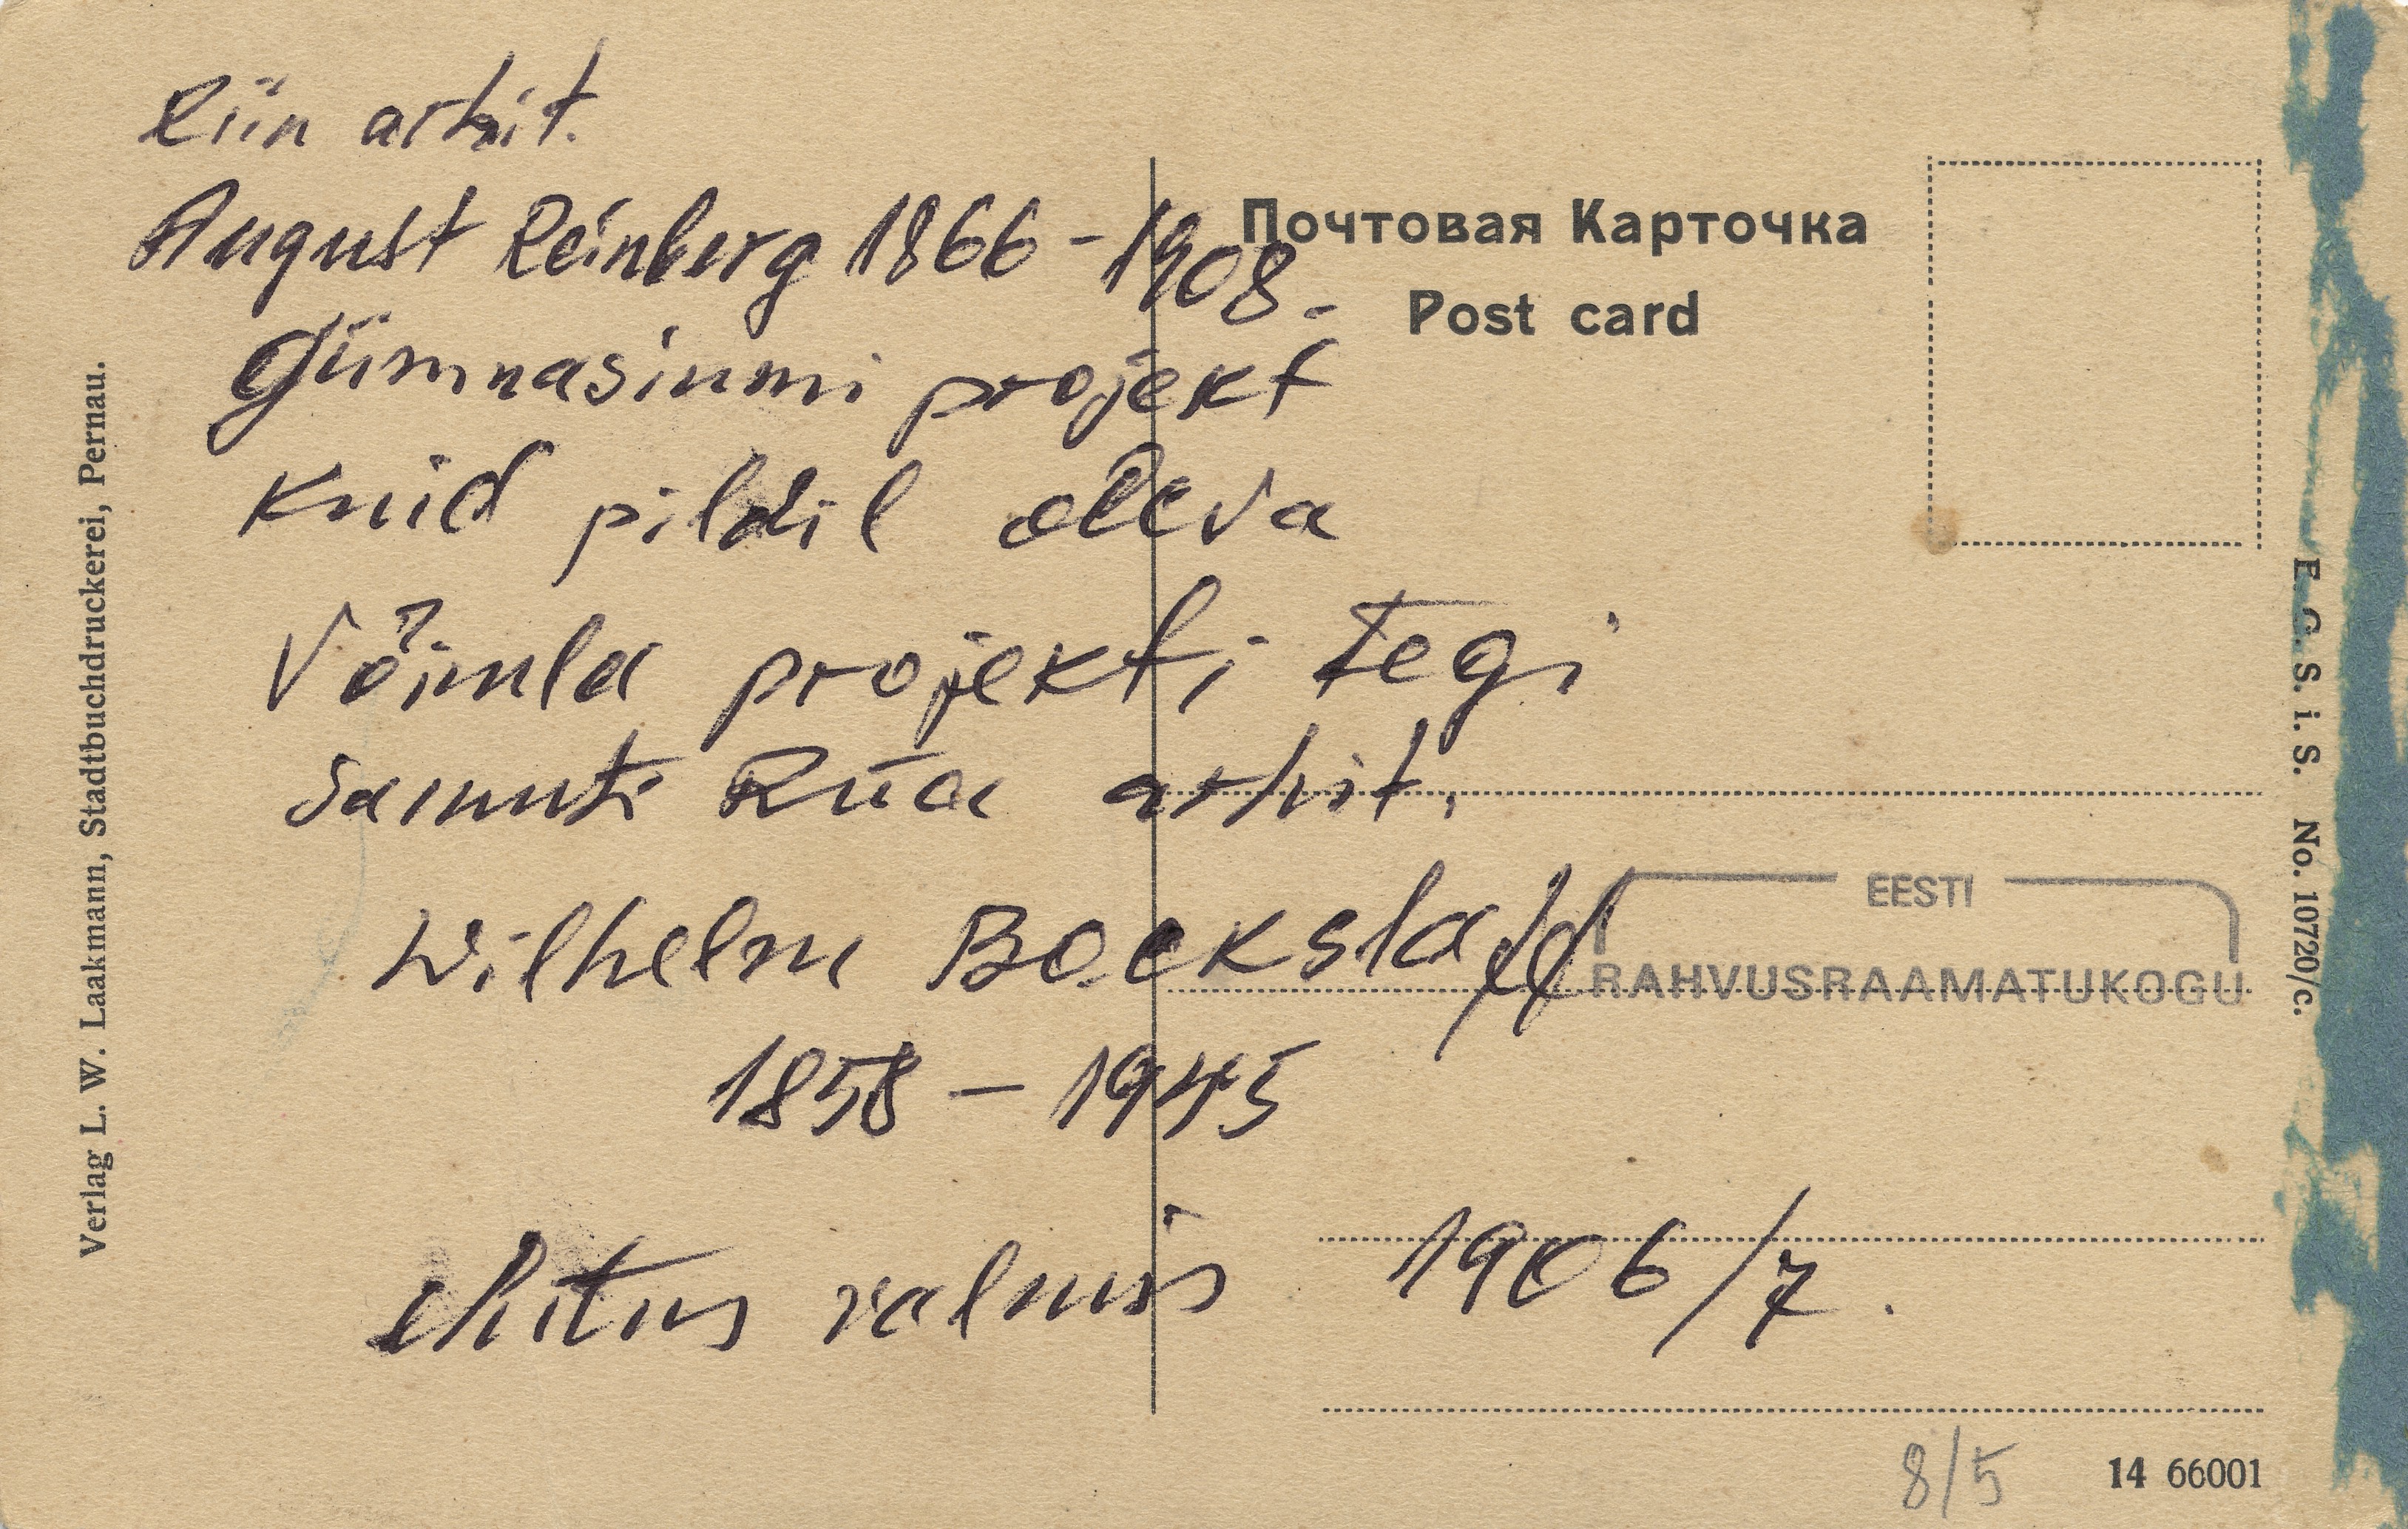 Riin arhit.
August Reinberg 1866-1908.
Gümnasiumi projekt
Kuid pildil oleva
Võimla projekti tegi
samuti Riia arhit.
Wilhelm Bockslaff
1858 - 1945
ehitus valmis 1906/7.
Почтовая Карточка
Post card
EESTI
RAHVUSRAAMATUKOGU
Verlag L. W. Laakmann, Stadtbuchdruckerei, Pernau.
E. G. S. i. S. No. 10720/c.
8/5
14 66001